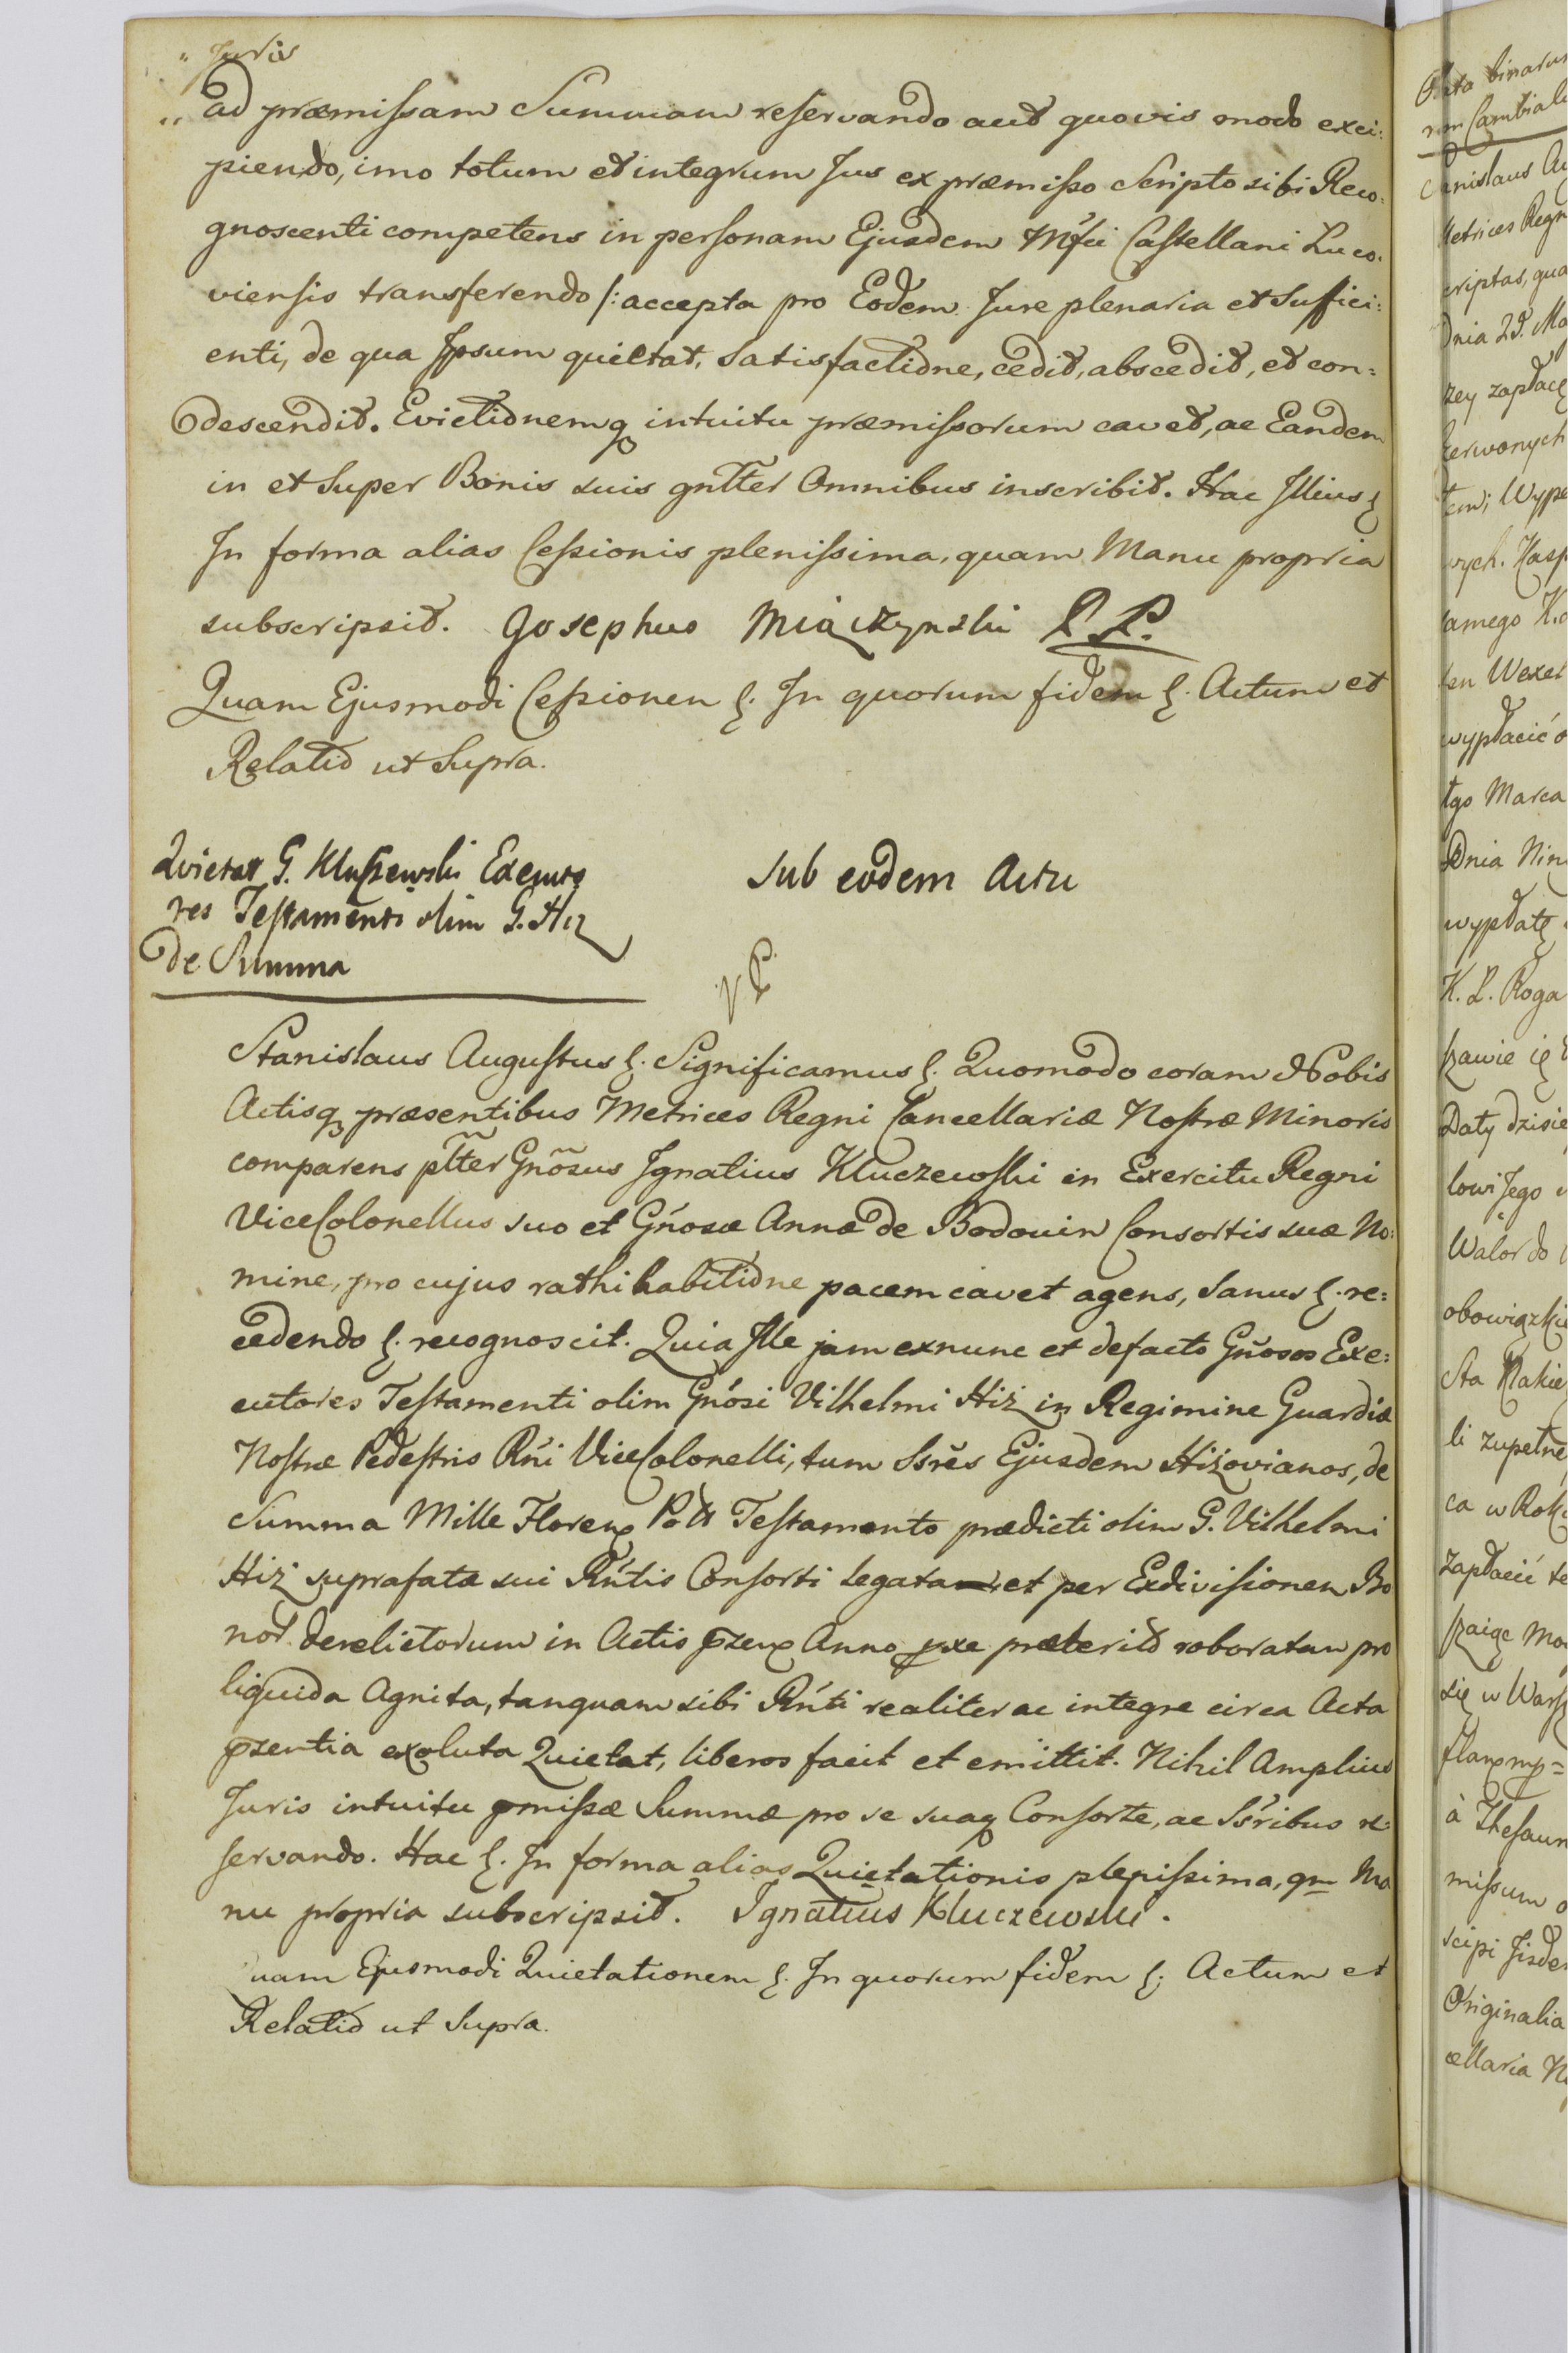 „ Juris
„ ad præmissam Summam reservando aut quovis modo exci:
piendo, imo totum et integrum Jus ex præmisso Scripto sibi Reco:
gnoscenti competens in personam Ejusdem Mfci Castellani Luco:
viensis transferendo /: accepta pro Eodem Jure plenaria et Suffici:
enti, de qua Ipsum quietat, Satisfactione, cedit, abscedit, et con:
descendit. Evictionemq intuitu præmissorum cavet, ac Eandem
in et Super Bonis suis gnlter Omnibus inscribit. Hac Illius
In forma alias Cessionis plenissima, quam Manu propria
subscripsit. Josephus Miączynski
Quam Ejusmodi Cessionem &. In quorum fidem &. Actum et
Relatio ut Supra.
Quietat G. Kluszewski Executo
res Testamenti olim G. Hiz
de Summa
Sub eodem Actu
Stanislaus Augustus &. Significamus &. Quomodo coram Nobis
Actisq præsentibus Metrices Regni Cancellariæ Nostræ Minoris
comparens pltter Gnosus Ignatius Kluczewski in Exercitu Regni
ViceColonellus suo et Gnosæ Annæ de Bodouin Consortis suæ No:
mine, pro cujus rathihabitione pacem cavet agens, Sanus &. re:
cedendo &. recognoscit. Quia Ille jam exnunc et defacto Gnosos Exe:
cutores Testamenti olim Gnosi Vilhelmi Hiz in Regimine Guardiæ
Nostræ Pedestris Rni ViceColonelli, tum Ssrês Ejusdem Hizovianos, de
Summa Mille Floren Testamento prædicti olim G. Vilhelmi
Hiz suprafatæ sui Rntis Consorti legata et per Exdivisionem Bo
nor. derelictorum in Actis pzen Anno pxe præterito roboratam pro
liquida Agnita, tanquam sibi Rnti realiter ac integre circa Acta
pzentia exoluta Quietat, liberos facit et emittit. Nihil Amplius
Juris intuitu pmissæ Summæ pro se suaq Consorte, ac Ssribus re
servando. Hac &. In forma alias Quietationis plenissima, qm Ma
nu propria subscripsit. Ignatius Kluczewski.
Quam Ejusmodi Quietationem &. In quorum fidem &. Actum et
Relatio ut Supra.